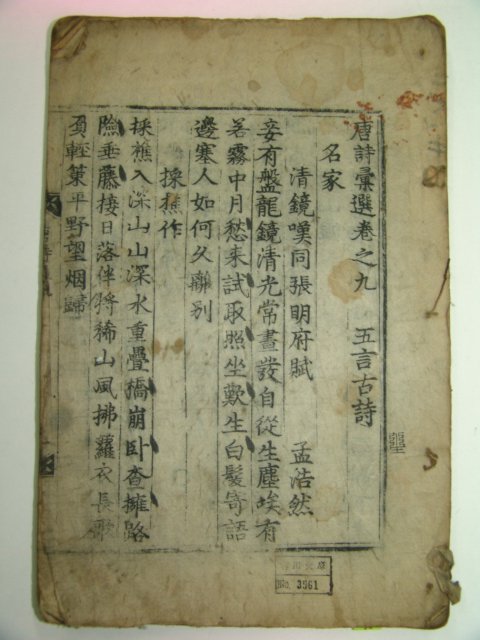 唐詩彙選卷之九 五言古詩
名家
清鏡嘆同張明府賦 孟浩然
妾有盤龍鏡清光常晝發自從生塵埃有
若霧中月愁来試取照坐歎生白髮寄語
邊塞人如何久離别
採樵作
採樵入深山山深水重疊橋崩卧査擁路
險垂藤接日落伴将稀山風拂蘿衣長歌
負輕策平野望烟歸
No. 3961